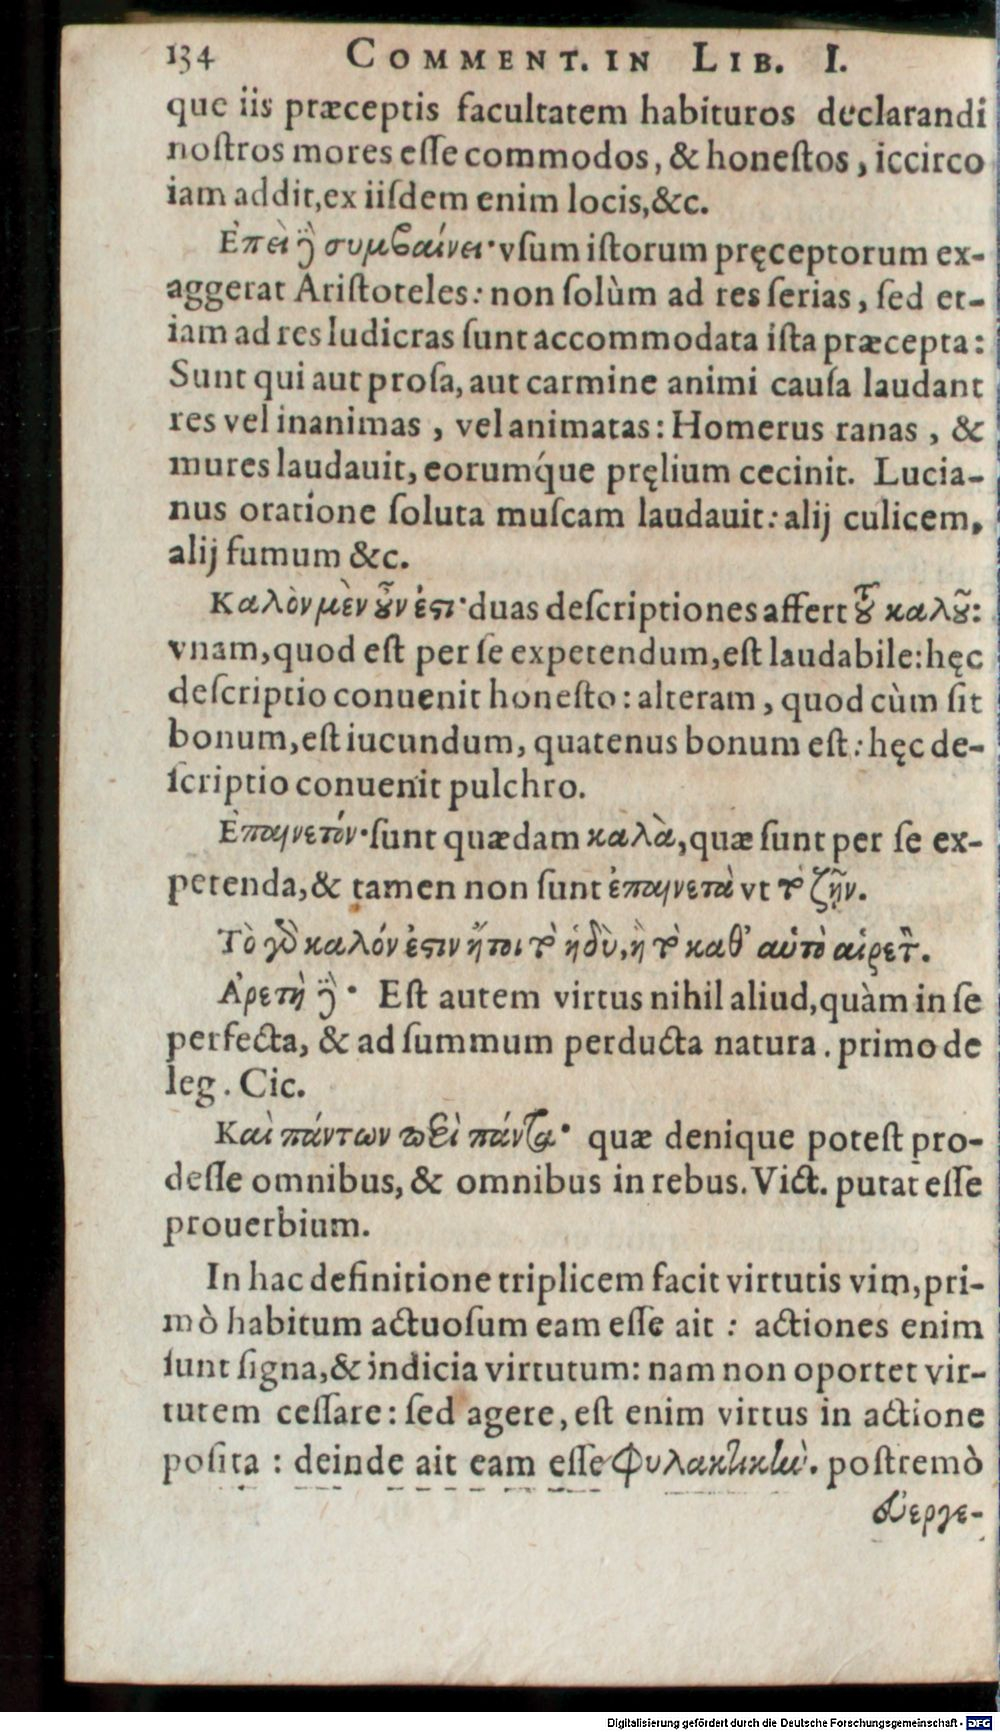 134 COMMENT. IN LIB. I.
que iis præceptis facultatem habituros declarandi
noſtros mores eſſe commodos, & honeſtos, iccirco
iam addit, ex iiſdem enim locis, &c.
Ἐπεὶ δὲ συμβαίνει· vſum iſtorum pręceptorum ex-
aggerat Ariſtoteles: non ſolùm ad res ſerias, ſed et-
iam ad res ludicras ſunt accommodata iſta præcepta:
Sunt qui aut proſa, aut carmine animi cauſa laudant
res vel inanimas, vel animatas: Homerus ranas, &
mures laudauit, eorumq́ue pręlium cecinit. Lucia-
nus oratione ſoluta muſcam laudauit: alij culicem,
alij fumum &c.
Καλὸν μὲν ȣ̓͂ν ἐϛι· duas deſcriptiones affert τȣ͂ καλȣ͂:
vnam, quod eſt per ſe expetendum, eſt laudabile: hęc
deſcriptio conuenit honeſto: alteram, quod cùm ſit
bonum, eſt iucundum, quatenus bonum eſt: hęc de-
ſcriptio conuenit pulchro.
Ἐπαινετόν· ſunt quædam καλὰ, quæ ſunt per ſe ex-
petenda, & tamen non ſunt ἐπαινετὰ vt τὸ ζῆν.
Τὸ γὸ καλόν ἐϛιν ἤτοι τὸ ἡδὺ, ἢ τὸ καθ' αὑτὸ αἱρετ̀.
Ἀρετὴ δὲ· Eſt autem virtus nihil aliud, quàm in ſe
perfecta, & ad ſummum perducta natura. primo de
leg. Cic.
Καὶ πάντων περὶ πάντα· quæ denique poteſt pro-
deſſe omnibus, & omnibus in rebus. Vict. putat eſſe
prouerbium.
In hac definitione triplicem facit virtutis vim, pri-
mò habitum actuoſum eam eſſe ait: actiones enim
ſunt ſigna, & indicia virtutum: nam non oportet vir-
tutem ceſſare: ſed agere, eſt enim virtus in actione
poſita: deinde ait eam eſſe φυλακτικὴν. poſtremò
εὐεργε-
Digitalisierung gefördert durch die Deutsche Forschungsgemeinschaft - DFG